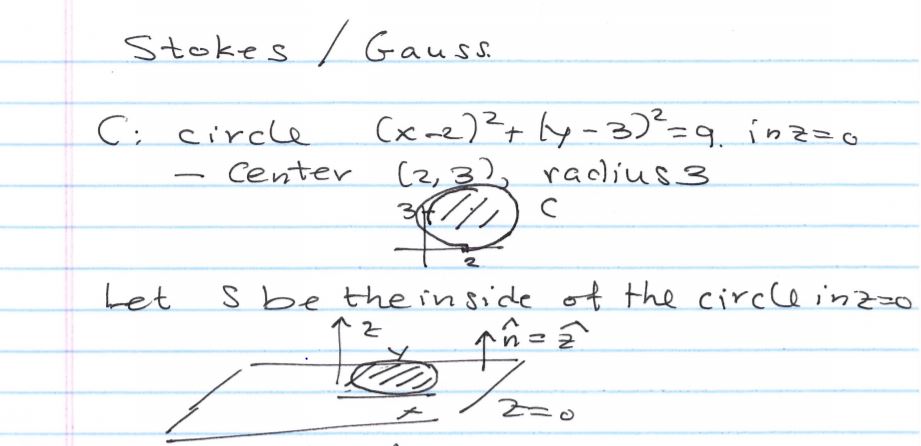 Stokes / Gauss.
C: circle (x-2)²+(y-3)²=9. in z=0
- Center (2,3), radius 3
3 C
2
Let S be the inside of the circle in z=0
z n̂ = ẑ
y
x z=0